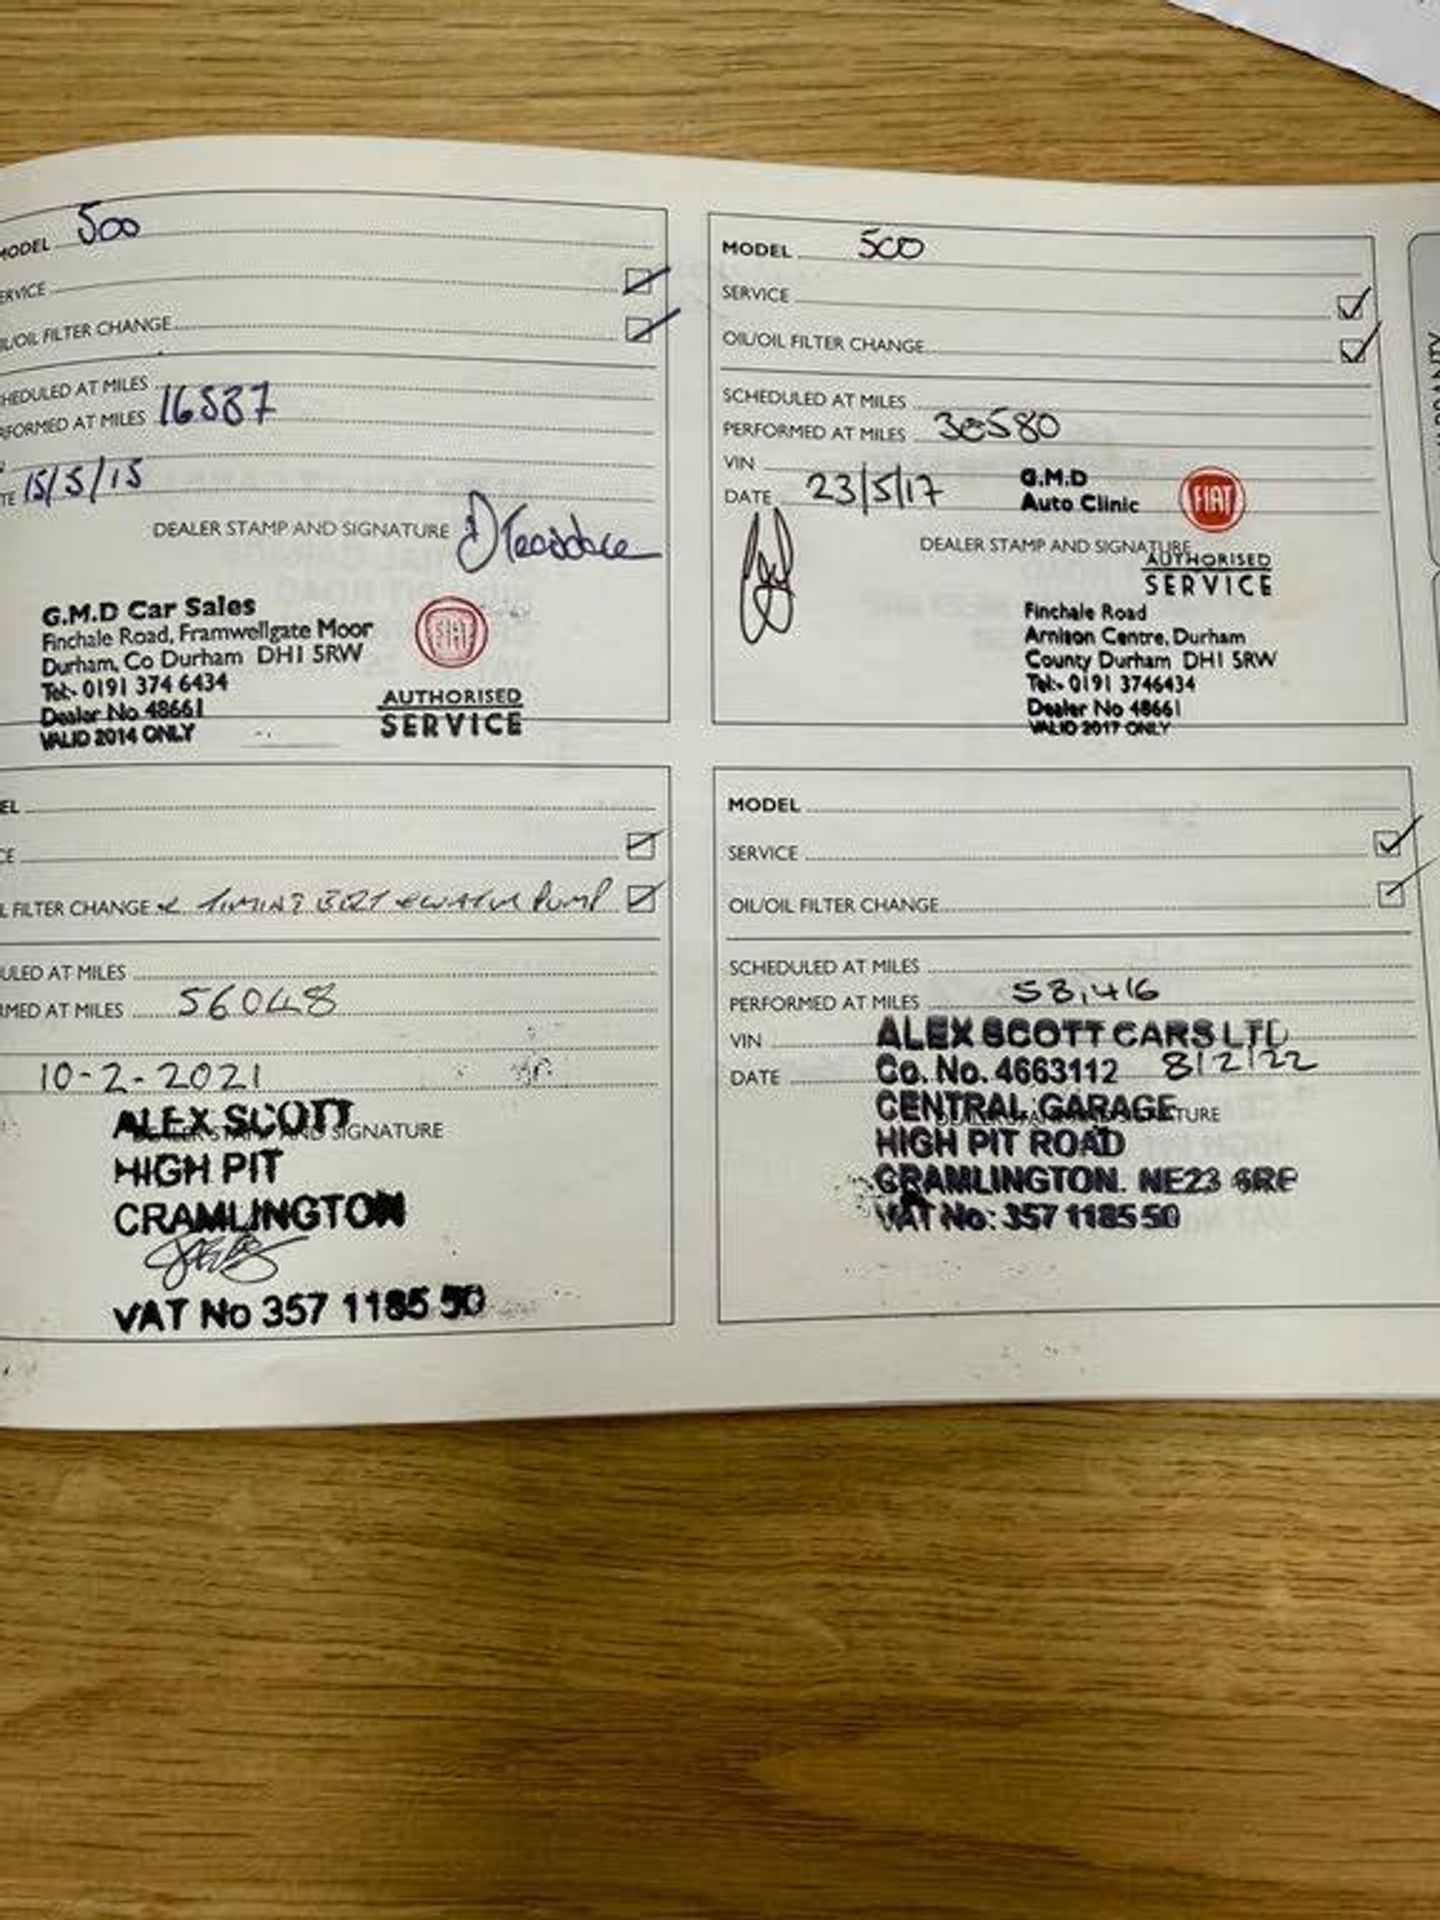 MODEL 500
ERVICE
OIL FILTER CHANGE
HEDULED AT MILES
RFORMED AT MILES 16587
TE 15/5/15
DEALER STAMP AND SIGNATURE
G.M.D Car Sales
Finchale Road, Framwellgate Moor
Durham, Co Durham DH1 5RW
Tel:- 0191 374 6434
Dealer No 48661
VALID 2014 ONLY
FIAT
AUTHORISED
SERVICE
MODEL 500
SERVICE
OIL/OIL FILTER CHANGE
SCHEDULED AT MILES
PERFORMED AT MILES 30580
VIN
DATE 23/5/17
G.M.D
Auto Clinic
FIAT
DEALER STAMP AND SIGNATURE
AUTHORISED
SERVICE
Finchale Road
Arnison Centre, Durham
County Durham DH1 5RW
Tel:- 0191 3746434
Dealer No 48661
VALID 2017 ONLY
EL
CE
L FILTER CHANGE & TIMING BELT & WATER PUMP
ULED AT MILES
RMED AT MILES 56048
10-2-2021
DEALER STAMP AND SIGNATURE
ALEX SCOTT
HIGH PIT
CRAMLINGTON
VAT No 357 1185 50
MODEL
SERVICE
OIL/OIL FILTER CHANGE
SCHEDULED AT MILES
PERFORMED AT MILES 58,416
VIN
DATE 8/2/22
ALEX SCOTT CARS LTD
Co. No. 4663112
CENTRAL GARAGE
DEALER STAMP AND SIGNATURE
HIGH PIT ROAD
CRAMLINGTON. NE23 6RE
VAT No: 357 1185 50